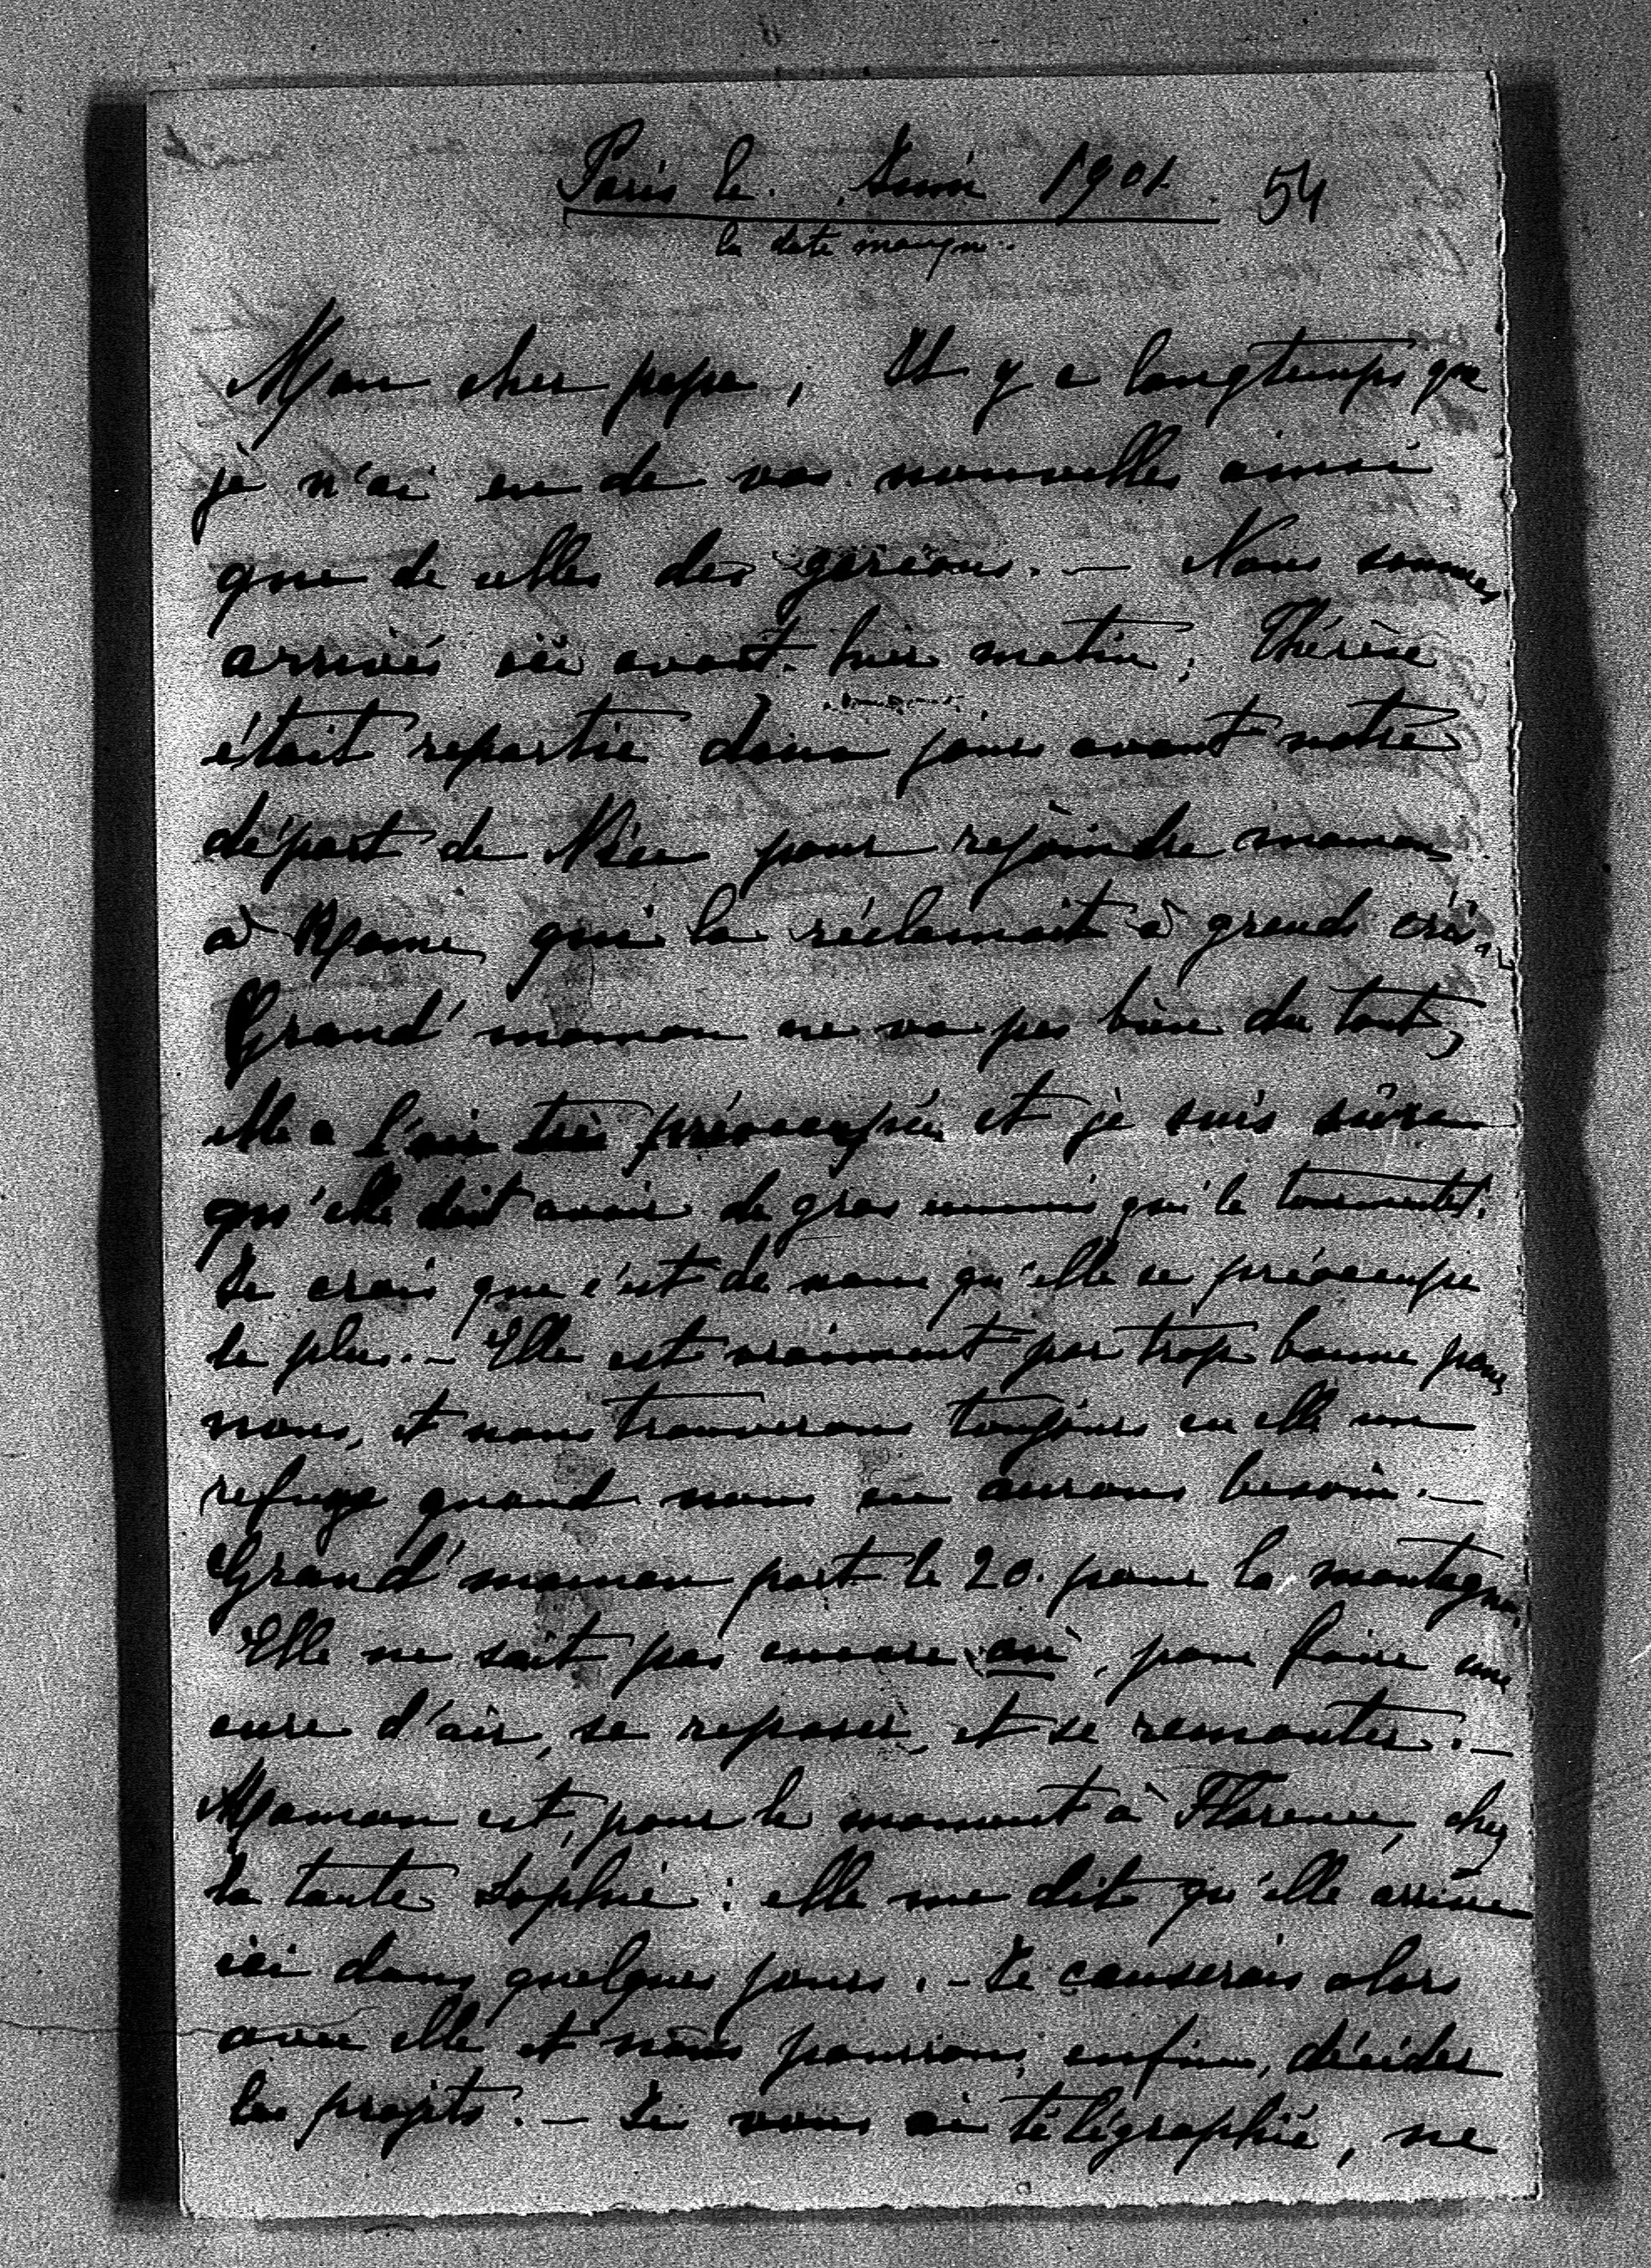 Paris le . Juin 1901. 54
la date manque.
Mon cher papa, Il y a longtemps que
je n'ai eu de vos nouvelles ainsi
que de celles des garçons. — Nous sommes
arrivés ici avant-hier matin; Thérèse
était repartie deux jours avant notre
départ de Nice pour rejoindre maman
à Rome, qui la réclamait à grands cris. —
Grand'maman ne va pas bien du tout,
elle a l'air très préoccupée et je suis sûre
qu'elle doit avoir de gros ennuis qui la tourmentent.
Je crois que c'est de nous qu'elle se préoccupe
le plus. — Elle est vraiment par trop bonne pour
nous, et nous trouverons toujours en elle un
refuge quand nous en aurons besoin. —
Grand'maman part le 20. pour la montagne.
Elle ne sait pas encore où, pour faire une
cure d'air, se reposer, et se remonter. —
Maman est, pour le moment à Florence, chez
la tante Sophie: elle me dit qu'elle arrive
ici dans quelques jours. — Je causerais alors
avec elle et nous pourrons, enfin, décider
les projets. — Je vous ai télégraphié, ne